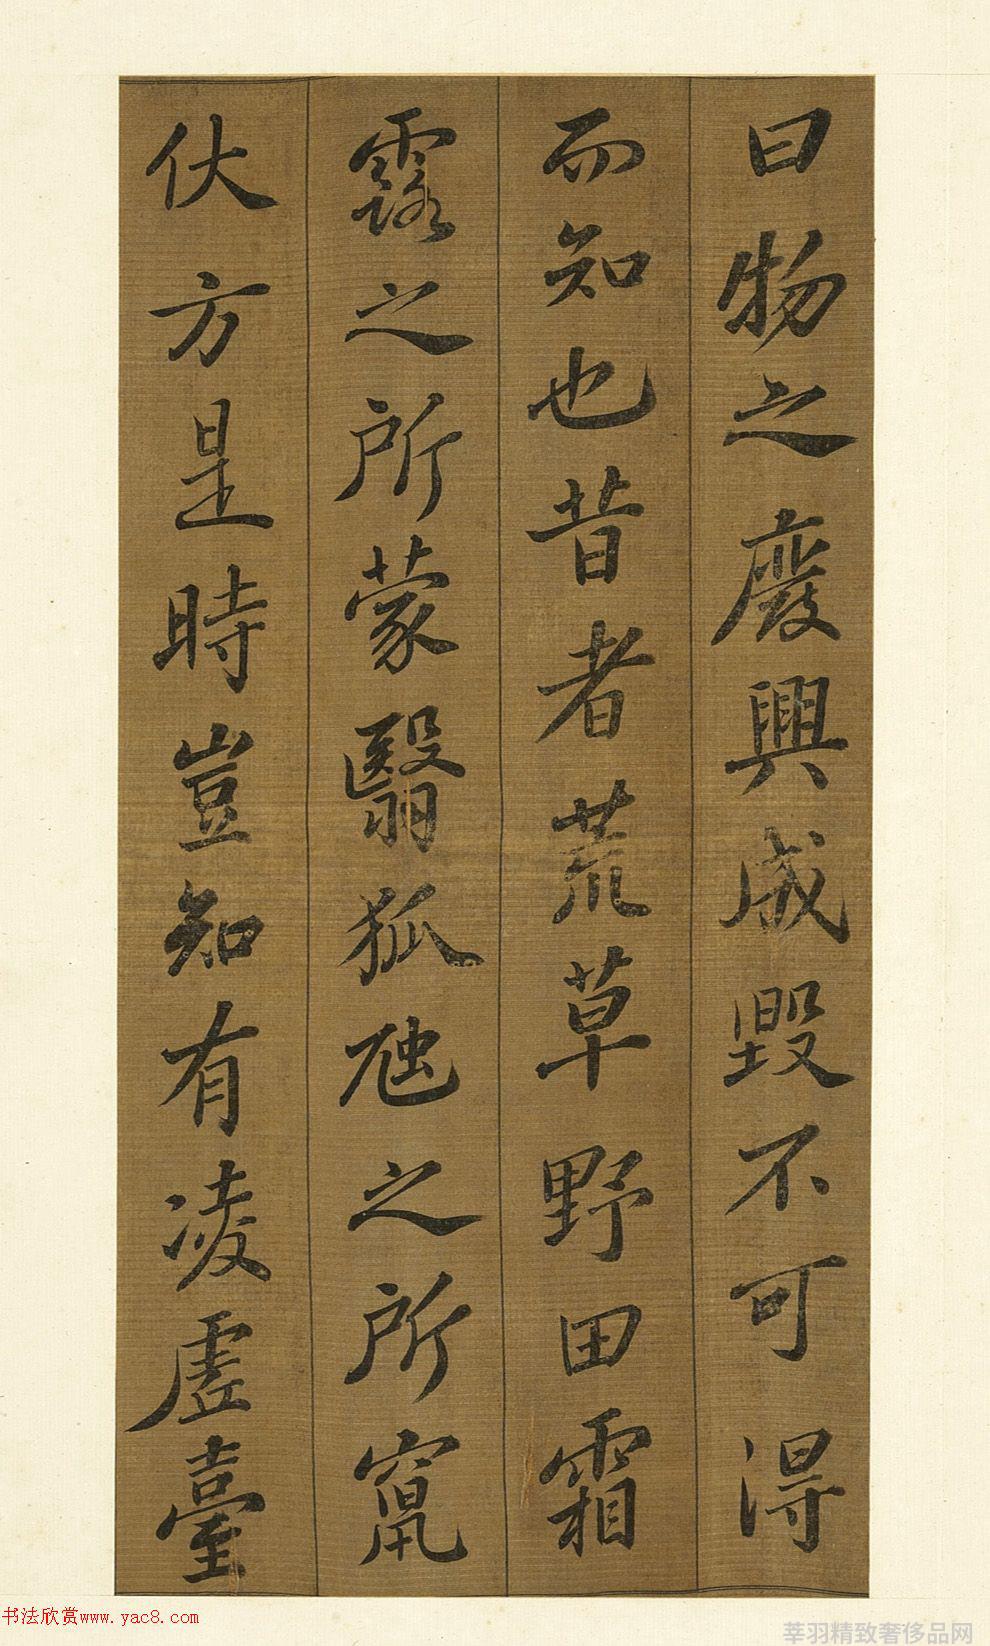 曰物之廢興成毀不可得
而知也昔者荒草野田霜
露之所蒙翳狐虺之所竄
伏方是時豈知有凌虛臺
书法欣赏www.yac8.com
莘羽精致奢侈品网